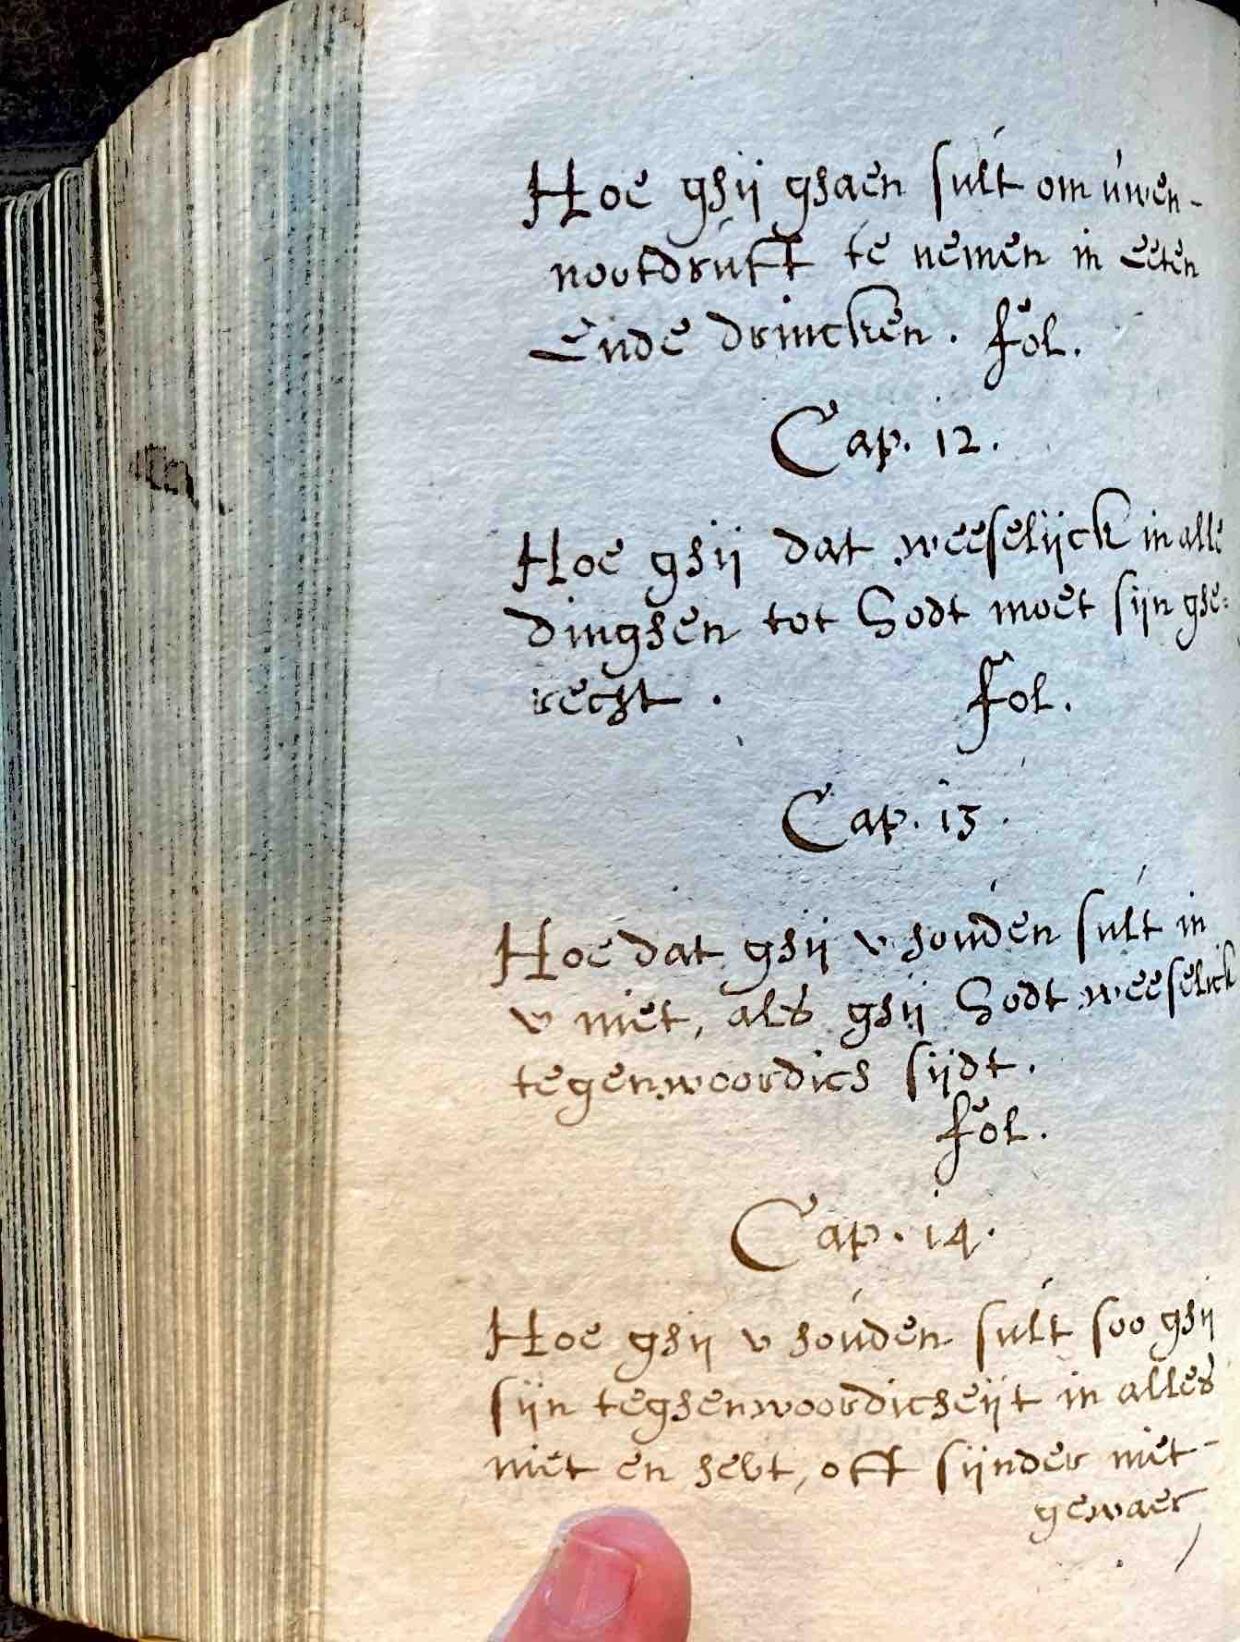 Hoe ghij ghaen sult om uwen-
nootdruft te nemen in Eeten
Ende drincken. fol.
Cap. 12.
Hoe ghij dat weeselijck in alle
dinghen tot Godt moet sijn ghe=
recht. fol.
Cap. 13.
Hoe dat ghij v houden sult in
v niet, als ghij Godt weeselick
tegenwoordich sijdt.
fol.
Cap. 14.
Hoe ghij v houden sult soo ghij
sijn teghenwoordicheijt in alles
niet en hebt, oft sijnder niet-
gewaer